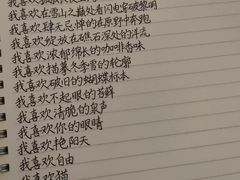 我喜欢在雪山之巅处看闪电穿破黎明
我喜欢肆无忌惮的在原野中奔跑
我喜欢绽放在礁石深处的浮流
我喜欢浓郁绵长的咖啡香味
我喜欢描摹久季雪的轮廓
我喜欢破旧的蝴蝶标本
我喜欢不起眼的苔藓
我喜欢清脆的泉声
我喜欢你的眼睛
我喜欢艳阳天
我喜欢自由
我喜欢猫